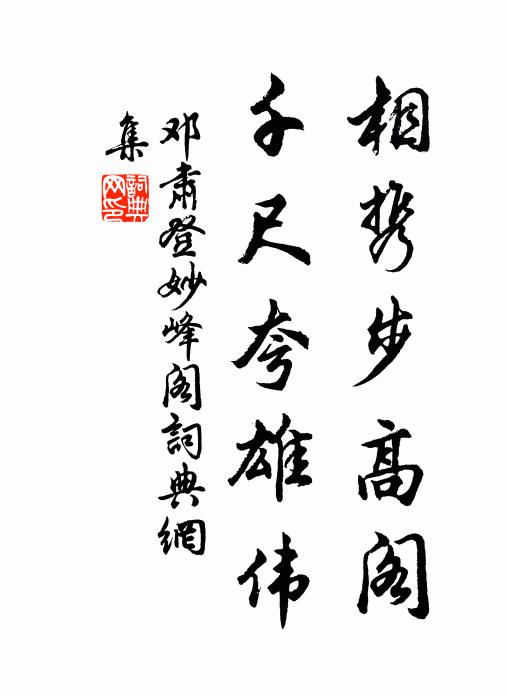 相携步高阁
千尺夸雄伟
邓肃登妙峰阁詞典網
集
詞典
网印